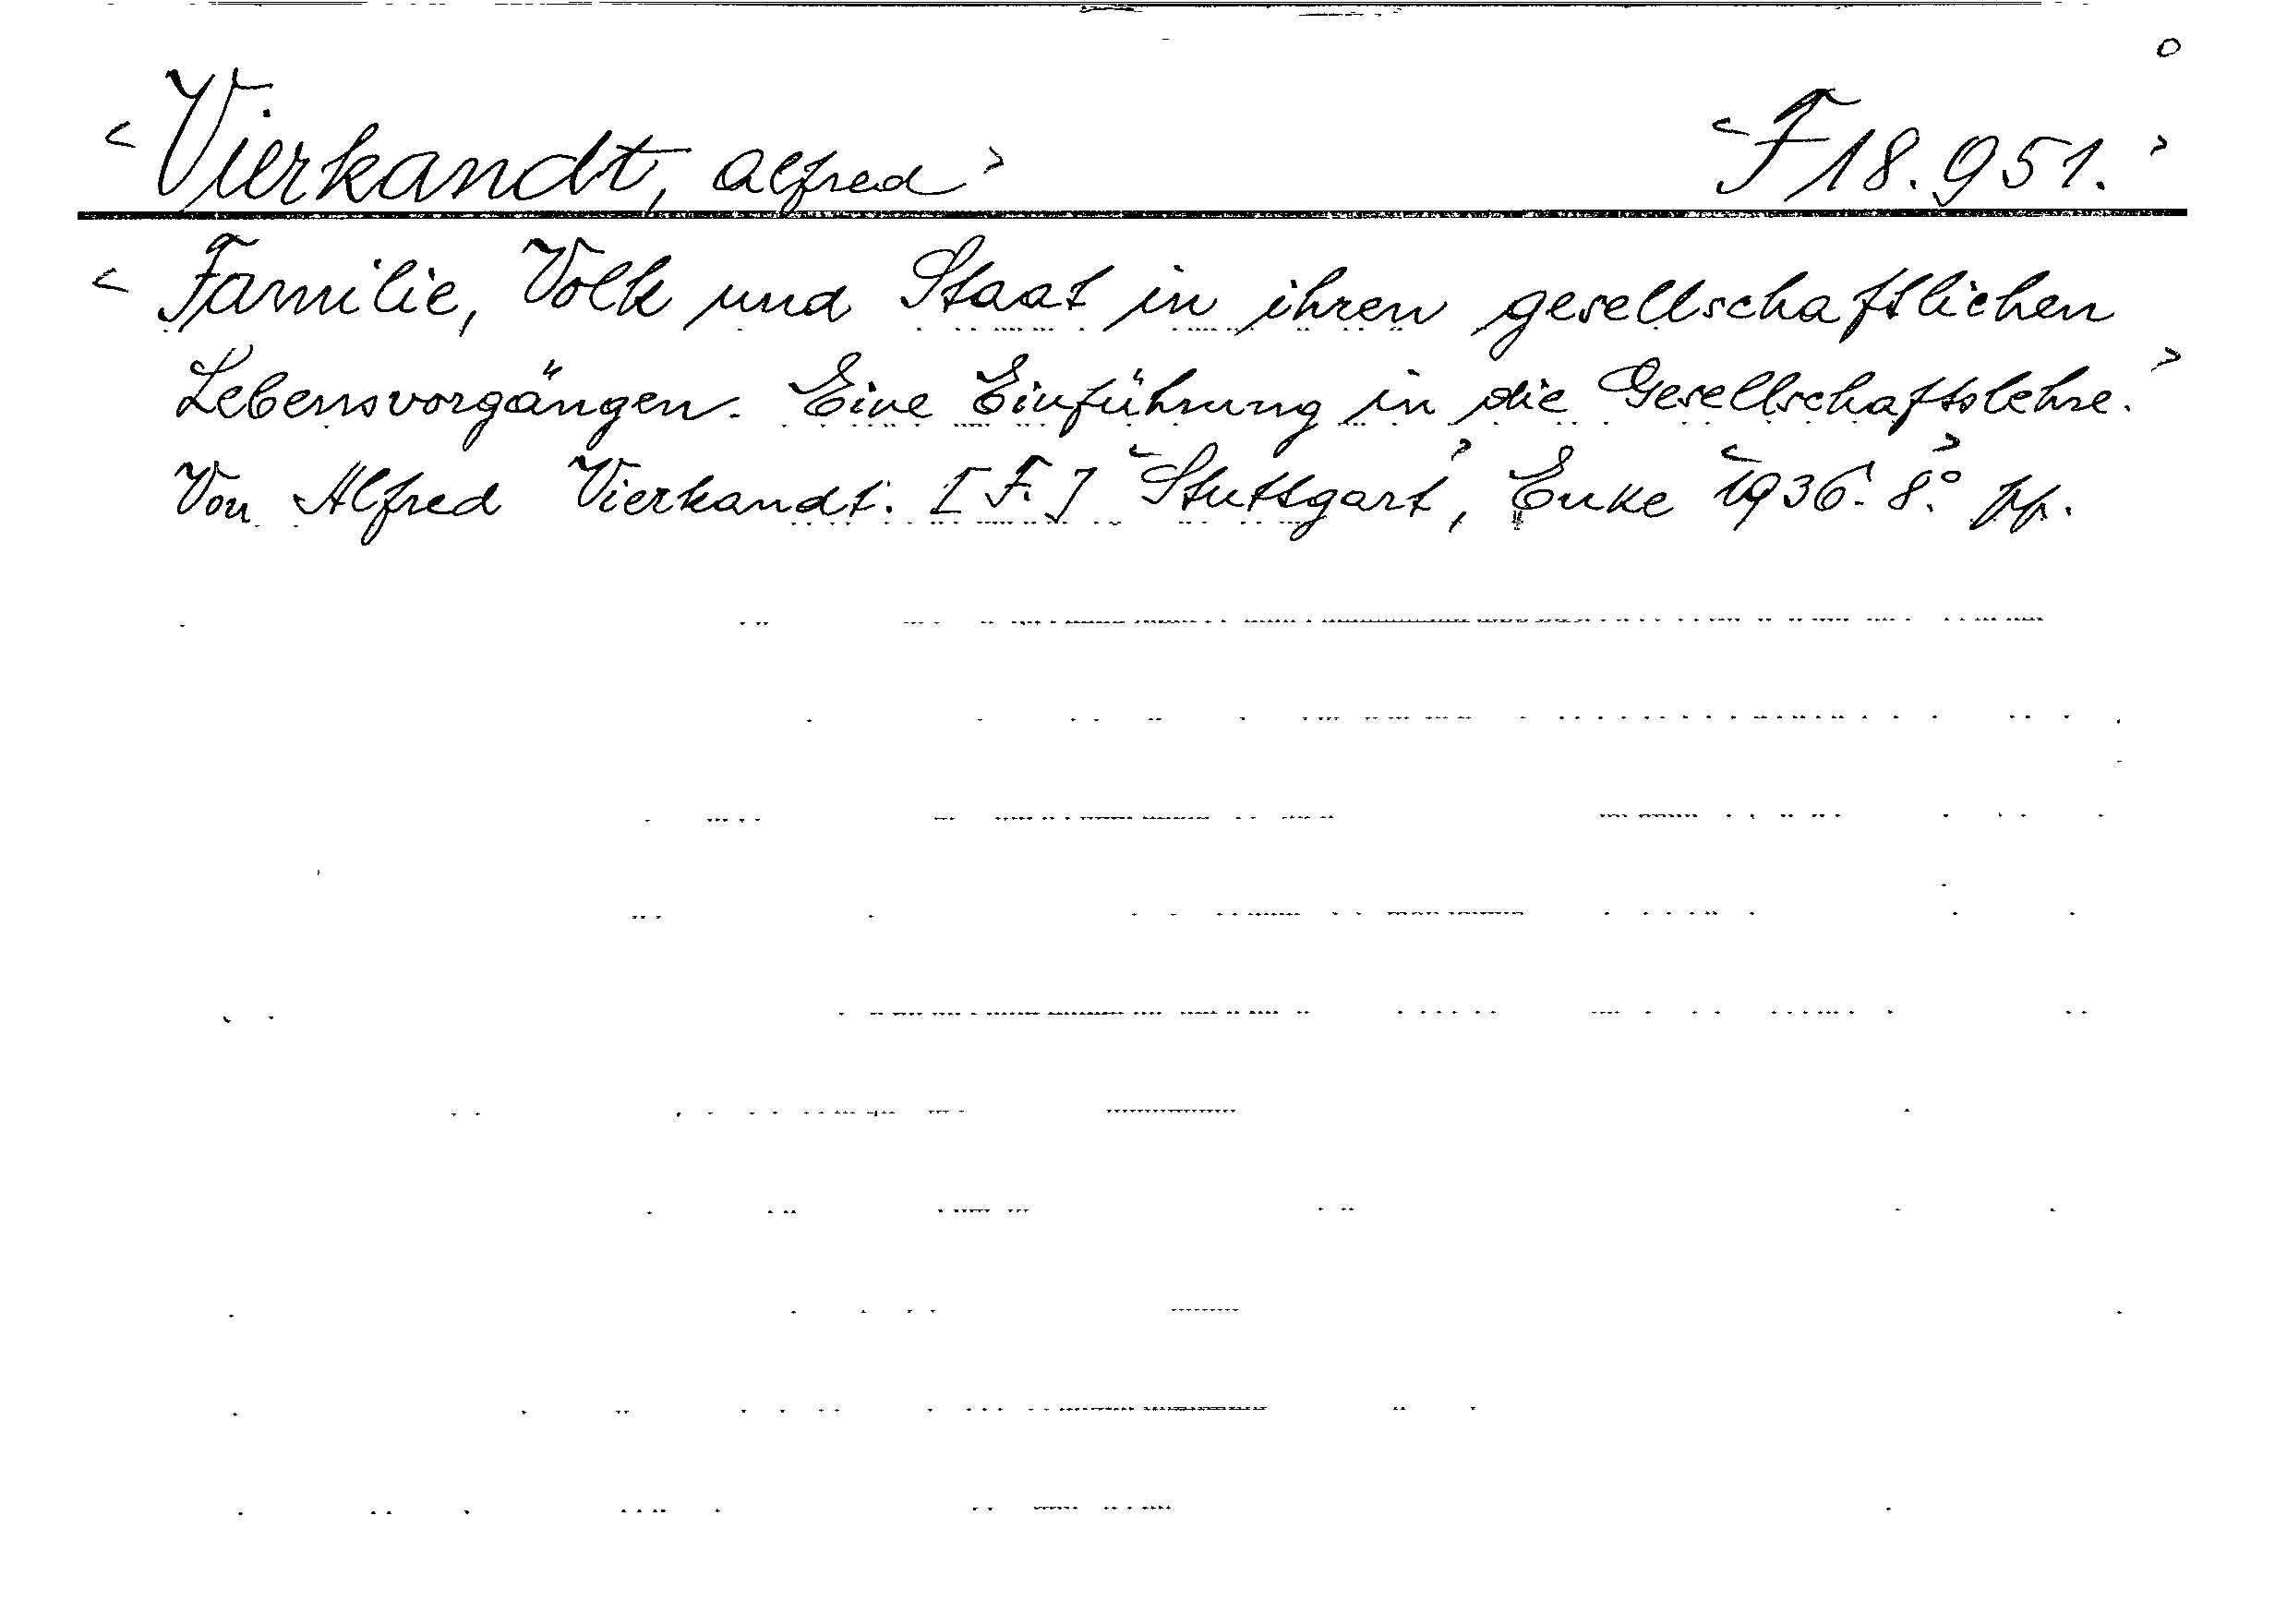 <Vierkandt, Alfred> <F 18.951.>
<Familie, Volk und Staat in ihren gesellschaftlichen
Lebensvorgängen. Eine Einführung in die Gesellschaftslehre.>
Von Alfred Vierkandt. [F.] <Stuttgart>, Enke <1936.> 8.° pp.